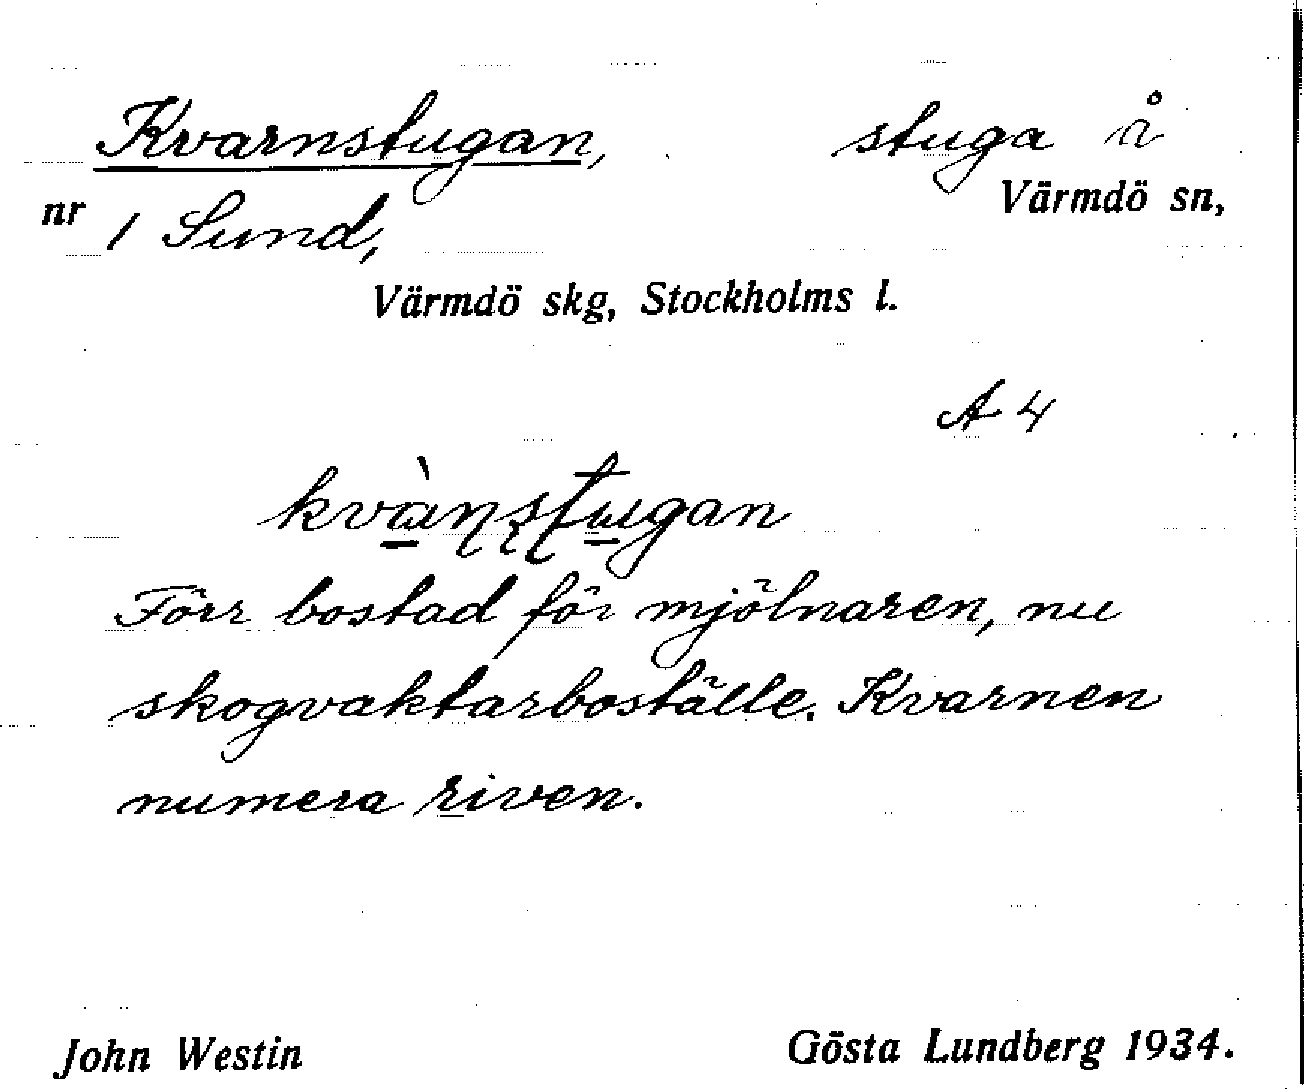 Kvarnstugan, stuga å
nr 1 Sund, Värmdö sn,
Värmdö skg, Stockholms l.
A 4
kvàɳʂʈugan
Förr bostad för mjölnaren, nu
skogvaktarboställe. Kvarnen
numera riven.
John Westin Gösta Lundberg 1934.